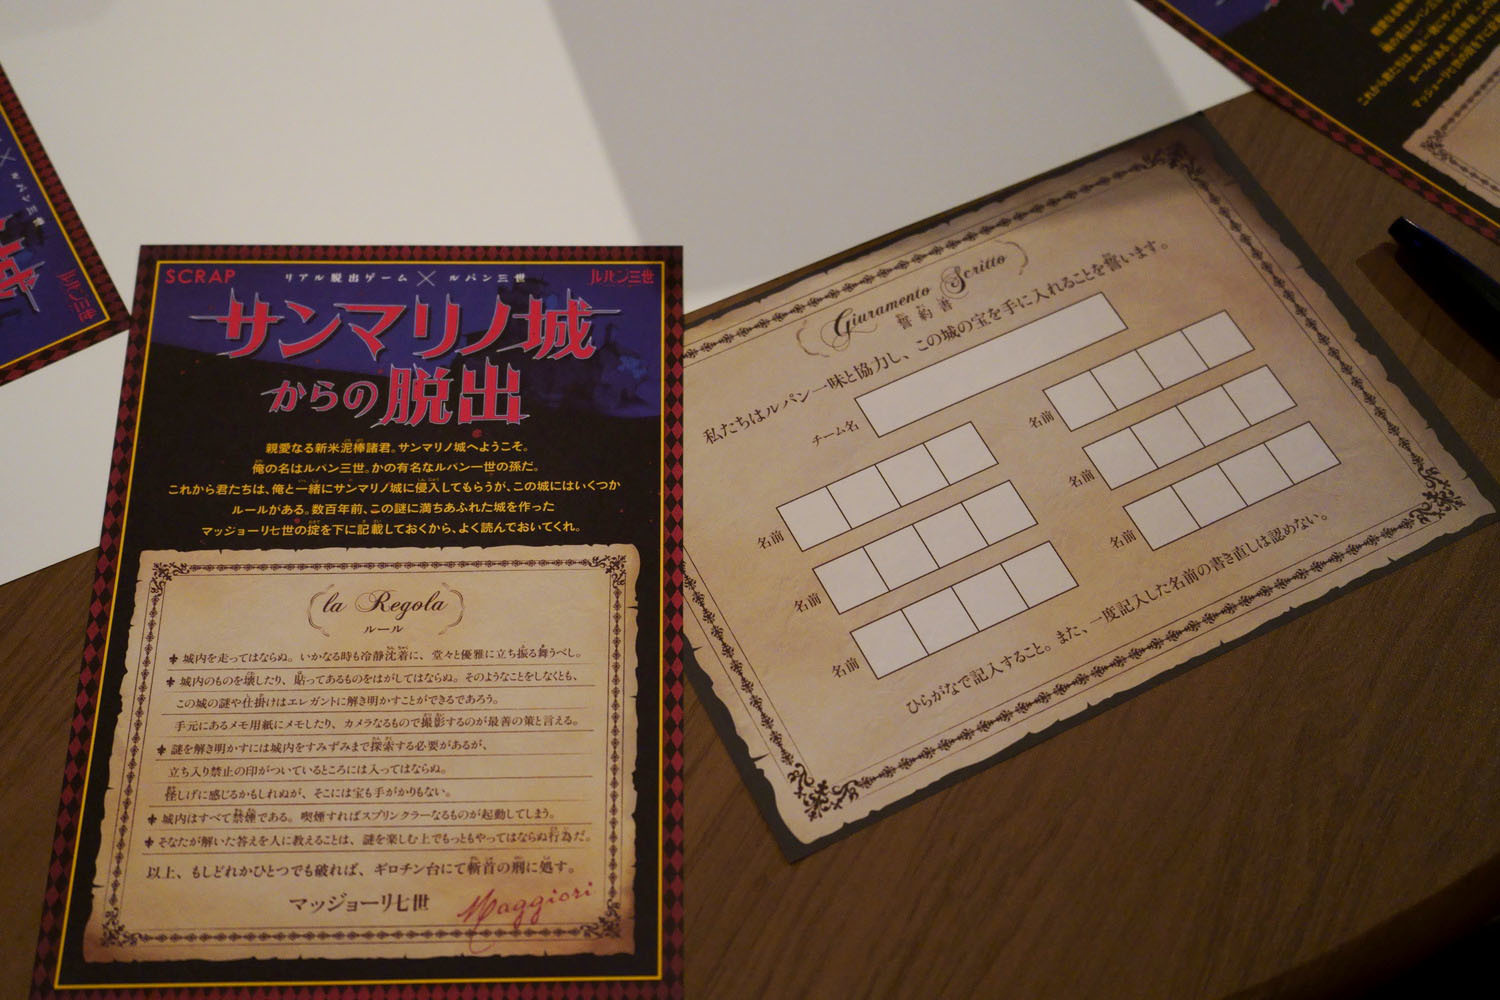 SCRAP
リアル脱出ゲーム × ルパン三世
ルパン三世
サンマリノ城
からの脱出
親愛なる新米泥棒諸君。サンマリノ城へようこそ。
俺の名はルパン三世。かの有名なルパン一世の孫だ。
これから君たちは、俺と一緒にサンマリノ城に侵入してもらうが、この城にはいくつか
ルールがある。数百年前、この謎に満ちあふれた城を作った
マッジョーリ七世の掟を下に記載しておくから、よく読んでおいてくれ。
la Regola
ルール
城内を走ってはならぬ。いかなる時も冷静沈着に、堂々と優雅に立ち振る舞うべし。
城内のものを壊したり、貼ってあるものをはがしてはならぬ。そのようなことをしなくとも、
この城の謎や仕掛けはエレガントに解き明かすことができるであろう。
手元にあるメモ用紙にメモしたり、カメラなるもので撮影するのが最善の策と言える。
謎を解き明かすには城内をすみずみまで探索する必要があるが、
立ち入り禁止の印がついているところには入ってはならぬ。
怪しげに感じるかもしれぬが、そこには宝も手がかりもない。
城内はすべて禁煙である。喫煙すればスプリンクラーなるものが起動してしまう。
そなたが解いた答えを人に教えることは、謎を楽しむ上でもっともやってはならぬ行為だ。
以上、もしどれかひとつでも破れば、ギロチン台にて斬首の刑に処す。
マッジョーリ七世
Maggiori
Giuramento Scritto
誓約書
私たちはルパン一味と協力し、この城の宝を手に入れることを誓います。
チーム名
名前
名前
名前
名前
名前
名前
ひらがなで記入すること。また、一度記入した名前の書き直しは認めない。
× ルパン三世
ルパン三世
城